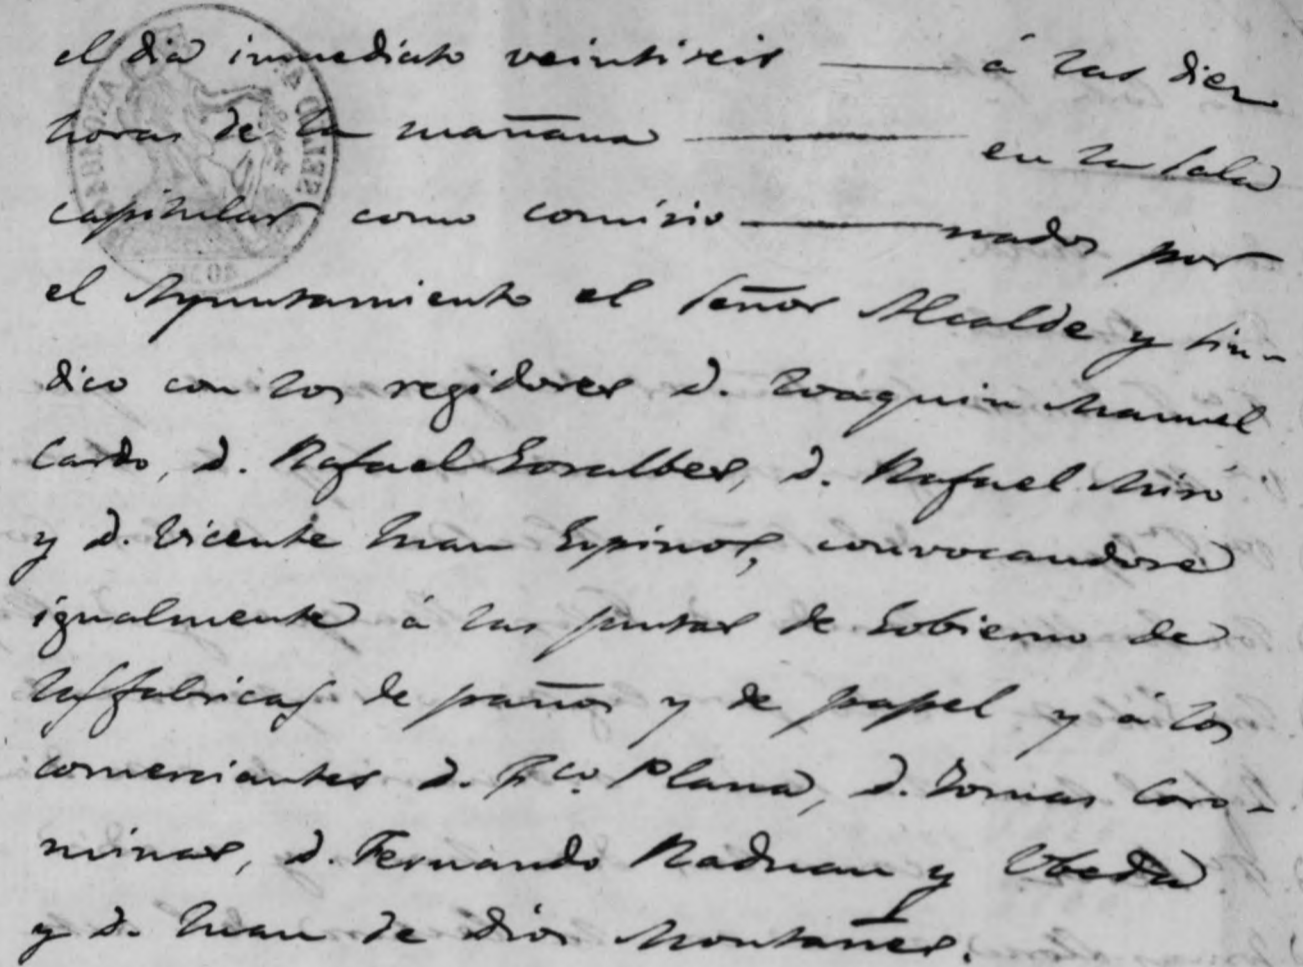 el dia inmediato veintiseis —— á las diez
horas de la mañana —— en la Sala
capitular como comisio——nados por
el Ayuntamiento el Señor Alcalde y Sin-
dico con los regidores D. Joaquin Manuel
Cardo, D. Rafael Goralbes, D. Rafael Miró
y D. Vicente Juan Espinos, convocandose
igualmente á las juntas de Gobierno de
las fabricas de paños y de papel y á los
comerciantes D. Fco. Plana, D. Tomas Coro-
minas, D. Fernando Raduan y Ubeda
y D. Juan de Dios Montañes.